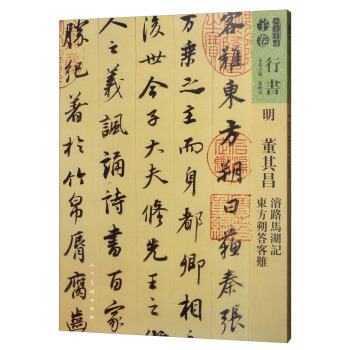 十卷
行書
明
董其昌
濬路馬湖記
東方朔答客難
客難東方朔曰蘇秦張
萬乘之主而身都卿相
後世今子大夫修先王
人之義諷誦詩書百家
勝紀著於竹帛脣腐齒
人民美術